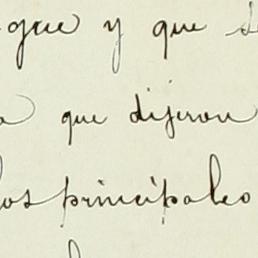 y que
que dijeron
los principales